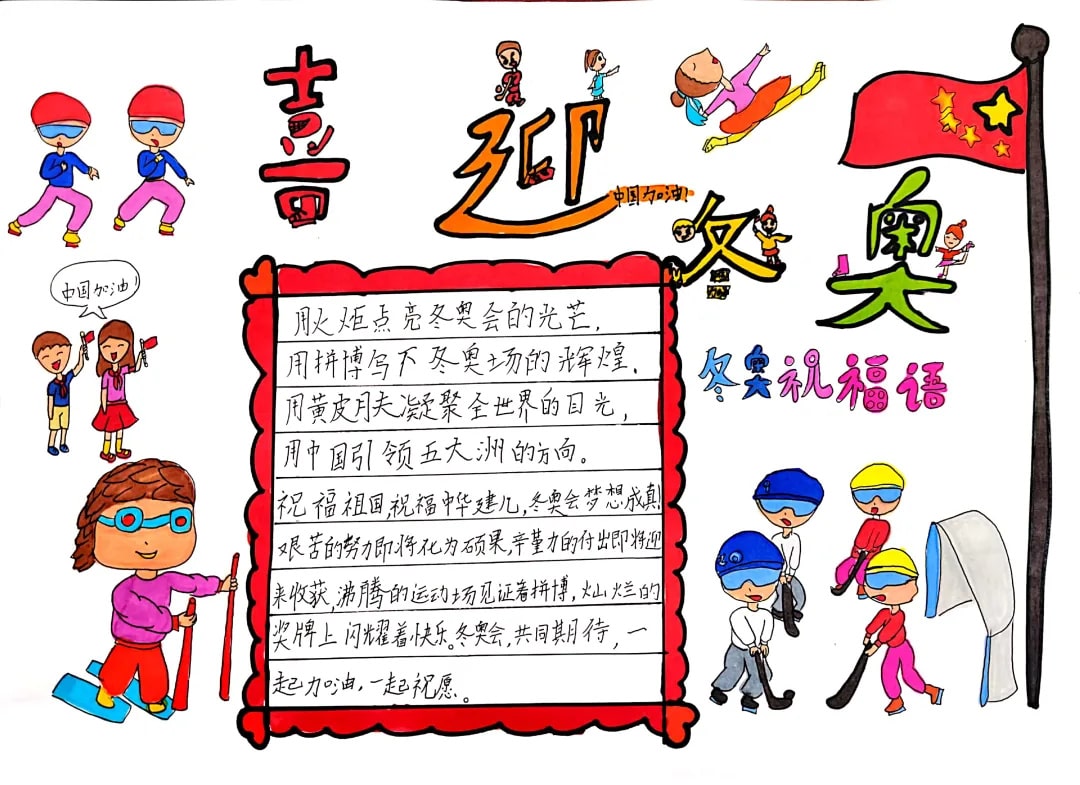 喜迎冬奥
中国加油!
中国加油!
冬奥祝福语
用火炬点亮冬奥会的光芒,
用拼博写下冬奥场的辉煌.
用黄皮肤凝聚全世界的目光,
用中国引领五大洲的方向。
祝福祖国,祝福中华建儿,冬奥会梦想成真!
艰苦的努力即将化为硕果,辛堇力的付出即将迎
来收获,沸腾的运动场见证着拼博,灿烂的
奖牌上闪耀着快乐。冬奥会,共同期待,一
起加油,一起祝愿。